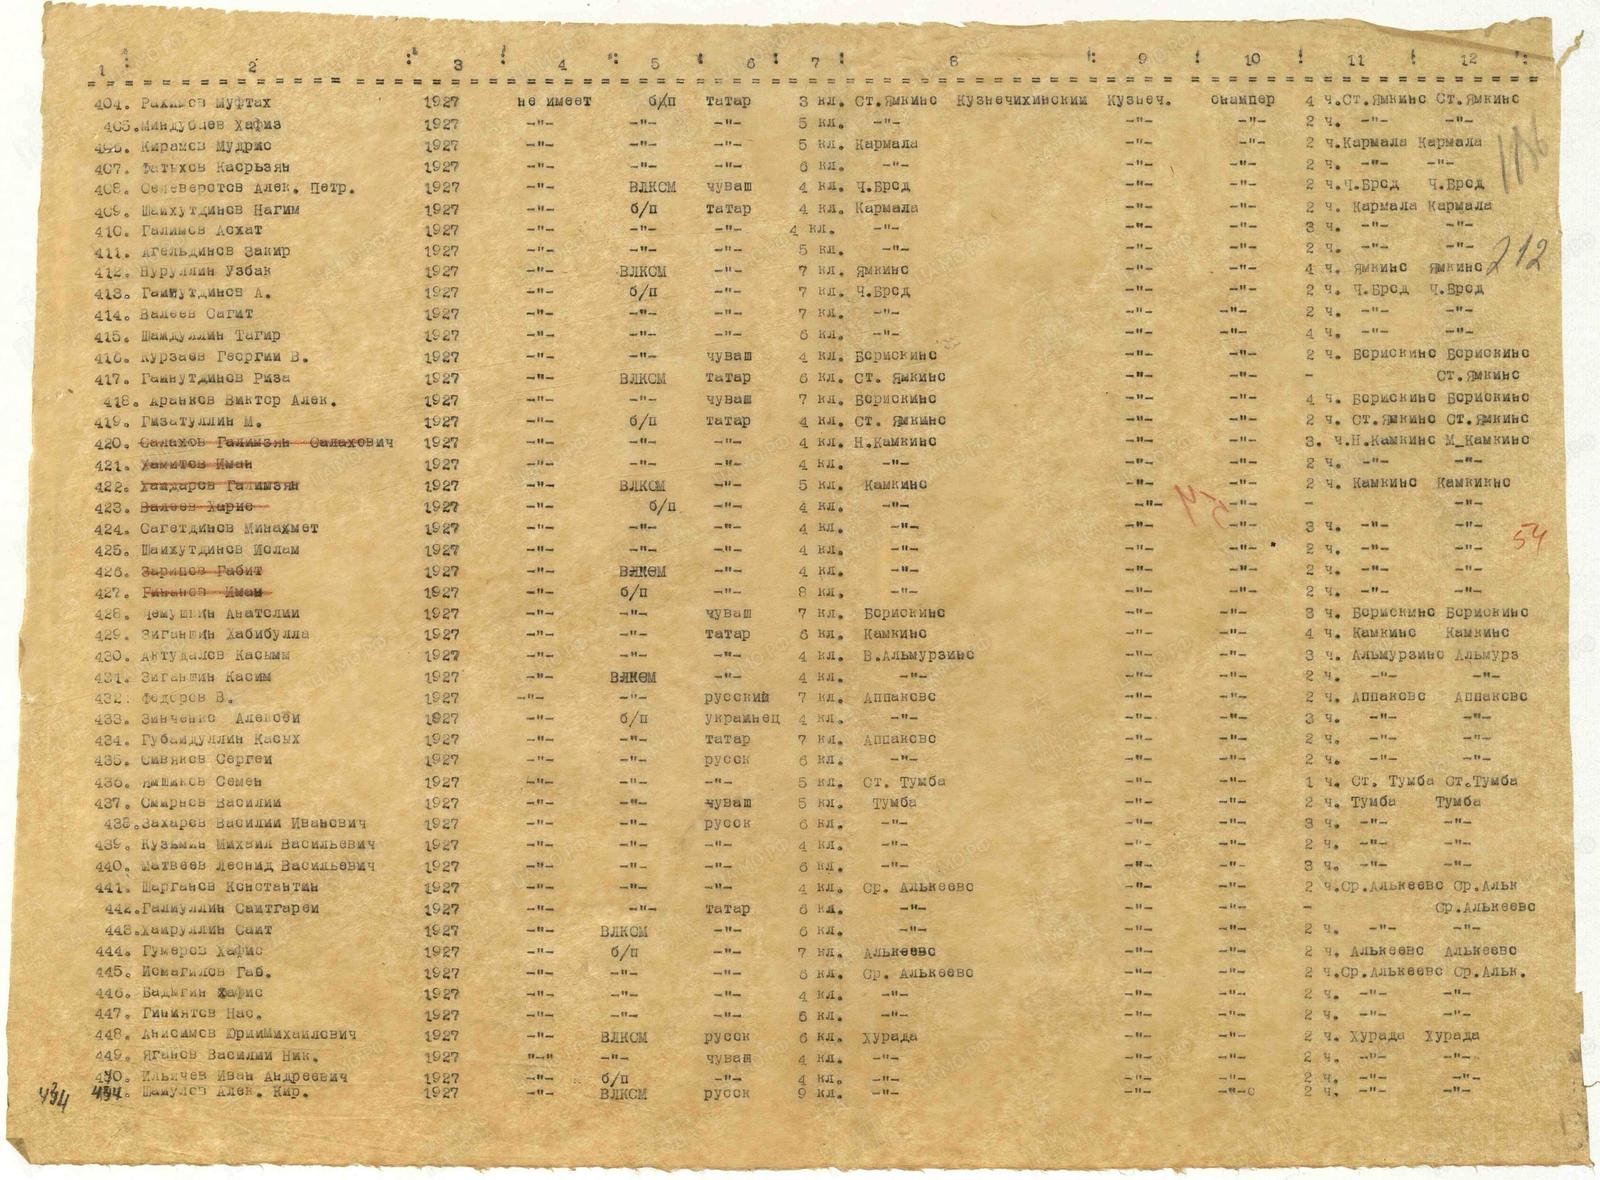 1 2 3 4 5 6 7 8 9 10 11 12
404. Рахимов Муфтах 1927 не имеет б/п татар 3 кл. Ст.Ямкино Кузнечихинский Кузнеч. снайпер 4 ч. Ст.Ямкино Ст.Ямкино
405. Миндубаев Хафиз 1927 -"- -"- -"- 5 кл. -"- -"- -"- 2 ч. -"- -"-
406. Кирамов Мудрис 1927 -"- -"- -"- 5 кл. Кармала -"- -"- 2 ч. Кармала Кармала
407. Фатыхов Касрызян 1927 -"- -"- -"- 6 кл. -"- -"- -"- 2 ч. -"- -"-
408. Селеверстов Алек. Петр. 1927 -"- ВЛКСМ чуваш 4 кл. Ч.Брод -"- -"- 2 ч. Ч.Брод Ч.Брод
409. Шайхутдинов Нагим 1927 -"- б/п татар 4 кл. Кармала -"- -"- 2 ч. Кармала Кармала
410. Галимов Асхат 1927 -"- -"- -"- 4 кл. -"- -"- -"- 3 ч. -"- -"-
411. Агельдинов Закир 1927 -"- -"- -"- 5 кл. -"- -"- -"- 2 ч. -"- -"-
412. Нуруллин Узбак 1927 -"- ВЛКСМ -"- 7 кл. Ямкино -"- -"- 4 ч. Ямкино Ямкино 212
413. Гайнутдинов А. 1927 -"- б/п -"- 7 кл. Ч.Брод -"- -"- 2 ч. Ч.Брод Ч.Брод
414. Валеев Сагит 1927 -"- -"- -"- 7 кл. -"- -"- -"- 2 ч. -"- -"-
415. Шайдуллин Тагир 1927 -"- -"- -"- 6 кл. -"- -"- -"- 4 ч. -"- -"-
416. Курзаев Георгий В. 1927 -"- -"- чуваш 4 кл. Борискино -"- -"- 2 ч. Борискино Борискино
417. Гайнутдинов Риза 1927 -"- ВЛКСМ татар 6 кл. Ст. Ямкино -"- -"- - Ст.Ямкино
418. Аранков Виктор Алек. 1927 -"- -"- чуваш 7 кл. Борискино -"- -"- 4 ч. Борискино Борискино
419. Гизатуллин М. 1927 -"- б/п татар 4 кл. Ст. Ямкино -"- -"- 2 ч. Ст.Ямкино Ст.Ямкино
420. Салахов Галимзян Салахович 1927 -"- -"- -"- 4 кл. Н.Камкино -"- -"- 3. ч.Н.Камкино М_Камкино
421. Хамитов Иман 1927 -"- -"- -"- 4 кл. -"- -"- -"- 2 ч. -"- -"-
422. Хайдаров Галимзян 1927 -"- ВЛКСМ -"- 5 кл. Камкино -"- -"- 2 ч. Камкино Камкикно
423. Валеев Харис 1927 -"- б/п -"- 4 кл. -"- -"- 54 -"- - -"-
424. Сагетдинов Минахмет 1927 -"- -"- -"- 4 кл. -"- -"- -"- 3 ч. -"- -"-
425. Шайхутдинов Ислам 1927 -"- -"- -"- 4 кл. -"- -"- -"- 2 ч. -"- -"- 54
426. Зарипов Габит 1927 -"- ВЛКСМ -"- 4 кл. -"- -"- -"- 2 ч. -"- -"-
427. Иман 1927 -"- б/п -"- 8 кл. -"- -"- -"- 2 ч. -"- -"-
428. Чемушкин Анатолий 1927 -"- -"- чуваш 7 кл. Борискино -"- -"- 3 ч. Борискино Борискино
429. Зиганшин Хабибулла 1927 -"- -"- татар 6 кл. Камкино -"- -"- 4 ч. Камкино Камкино
430. Актудалов Касыми 1927 -"- -"- -"- 4 кл. В.Альмурзино -"- -"- 3 ч. Альмурзино Альмурз
431. Зиганшин Касим 1927 -"- ВЛКСМ -"- 4 кл. -"- -"- -"- 2 ч. -"- -"-
432. Федоров В. 1927 -"- -"- русский 7 кл. Аппаково -"- -"- 2 ч. Аппаково Аппаково
433. Зинченко Алексей 1927 -"- б/п украинец 4 кл. -"- -"- -"- 3 ч. -"- -"-
434. Губайдуллин Касых 1927 -"- -"- татар 7 кл. Аппаково -"- -"- 2 ч. -"- -"-
435. Сивяков Сергей 1927 -"- -"- русск 6 кл. -"- -"- -"- 2 ч. -"- -"-
436. Ямщиков Семен 1927 -"- -"- -"- 5 кл. Ст. Тумба -"- -"- 1 ч. Ст. Тумба Ст.Тумба
437. Смирнов Василий 1927 -"- -"- чуваш 5 кл. Тумба -"- -"- 2 ч. Тумба Тумба
438. Захаров Василий Иванович 1927 -"- -"- русск 6 кл. -"- -"- -"- 3 ч. -"- -"-
439. Кузьмин Михаил Васильевич 1927 -"- -"- -"- 4 кл. -"- -"- -"- 2 ч. -"- -"-
440. Матвеев Леонид Васильевич 1927 -"- -"- -"- 6 кл. -"- -"- -"- 3 ч. -"- -"-
441. Шарганов Константин 1927 -"- -"- -"- 4 кл. Ср. Алькеево -"- -"- 2 ч.Ср.Алькеево Ср.Альк
442. Галиуллин Саитгарей 1927 -"- -"- татар 6 кл. -"- -"- -"- - Ср.Алькеево
443. Хайруллин Саит 1927 -"- ВЛКСМ -"- 6 кл. -"- -"- -"- 2 ч. -"- -"-
444. Гумеров Хафис 1927 -"- б/п -"- 7 кл. Алькеево -"- -"- 2 ч. Алькеево Алькеево
445. Исмагилов Габ. 1927 -"- -"- -"- 6 кл. Ср. Алькеево -"- -"- 2 ч.Ср.Алькеево Ср.Альк.
446. Бадыгин Хафис 1927 -"- -"- -"- 4 кл. -"- -"- -"- 2 ч. -"- -"-
447. Гиниятов Нас. 1927 -"- -"- -"- 6 кл. -"- -"- -"- 2 ч. -"- -"-
448. Анисимов ЮрийМихайлович 1927 -"- ВЛКСМ русск 6 кл. Хурада -"- -"- 2 ч. Хурада Хурада
449. Яганов Василий Ник. 1927 -"- -"- чуваш 4 кл. -"- -"- -"- 2 ч. -"- -"-
450. Ильичев Иван Андреевич 1927 -"- б/п -"- 4 кл. -"- -"- -"- 2 ч. -"- -"-
Шамулов Алек. Кир. 1927 -"- ВЛКСМ русск 9 кл. -"- -"- -"-с 2 ч. -"- -"-